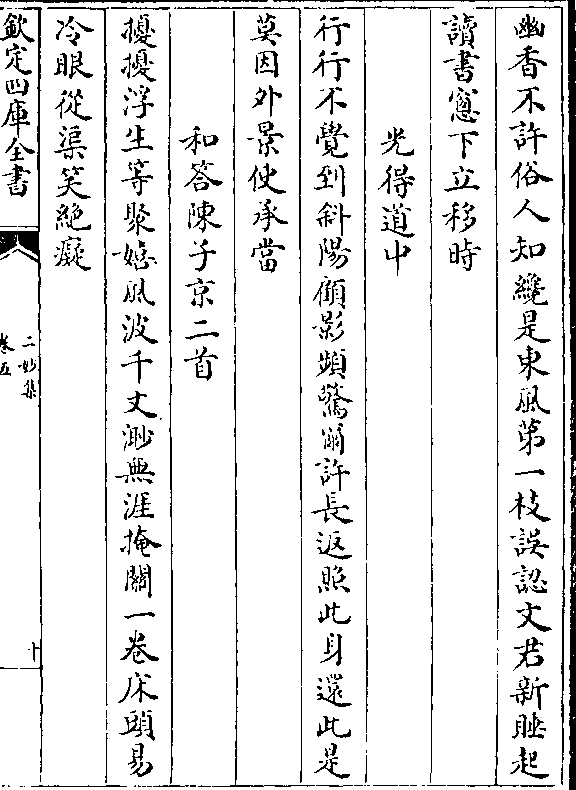 幽香不許俗人知纔是東風第一枝誤認文君新睡起
讀書窻下立移時
光得道中
行行不覺到斜陽顧影頻驚爾許長返照此身還此是
莫因外景使承當
和答陳子京二首
擾擾浮生等聚嬉風波千丈渺無涯掩關一卷床頭易
冷眼從渠笑絶癡
欽定四庫全書
二妙集
卷五
十